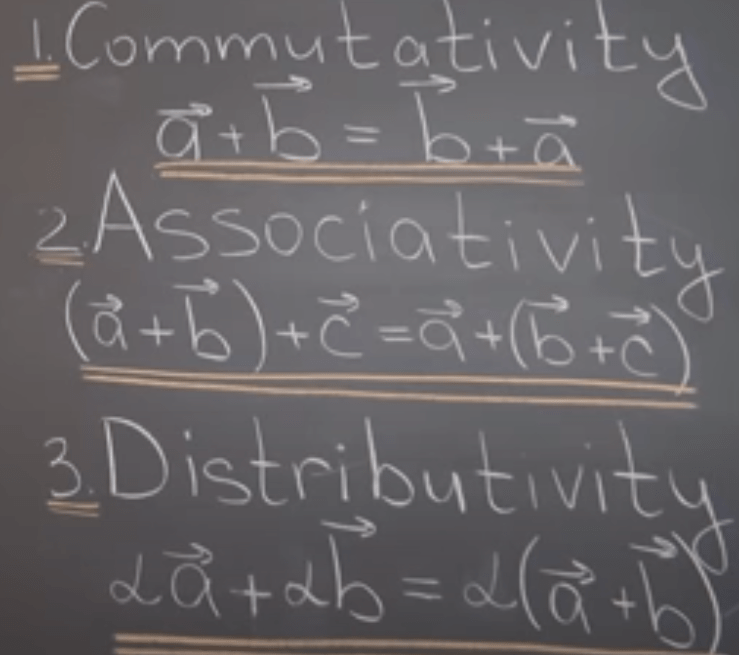 1. Commutativity
a⃗ + b⃗ = b⃗ + a⃗
2. Associativity
(a⃗ + b⃗) + c⃗ = a⃗ + (b⃗ + c⃗)
3. Distributivity
αa⃗ + αb⃗ = α(a⃗ + b⃗)